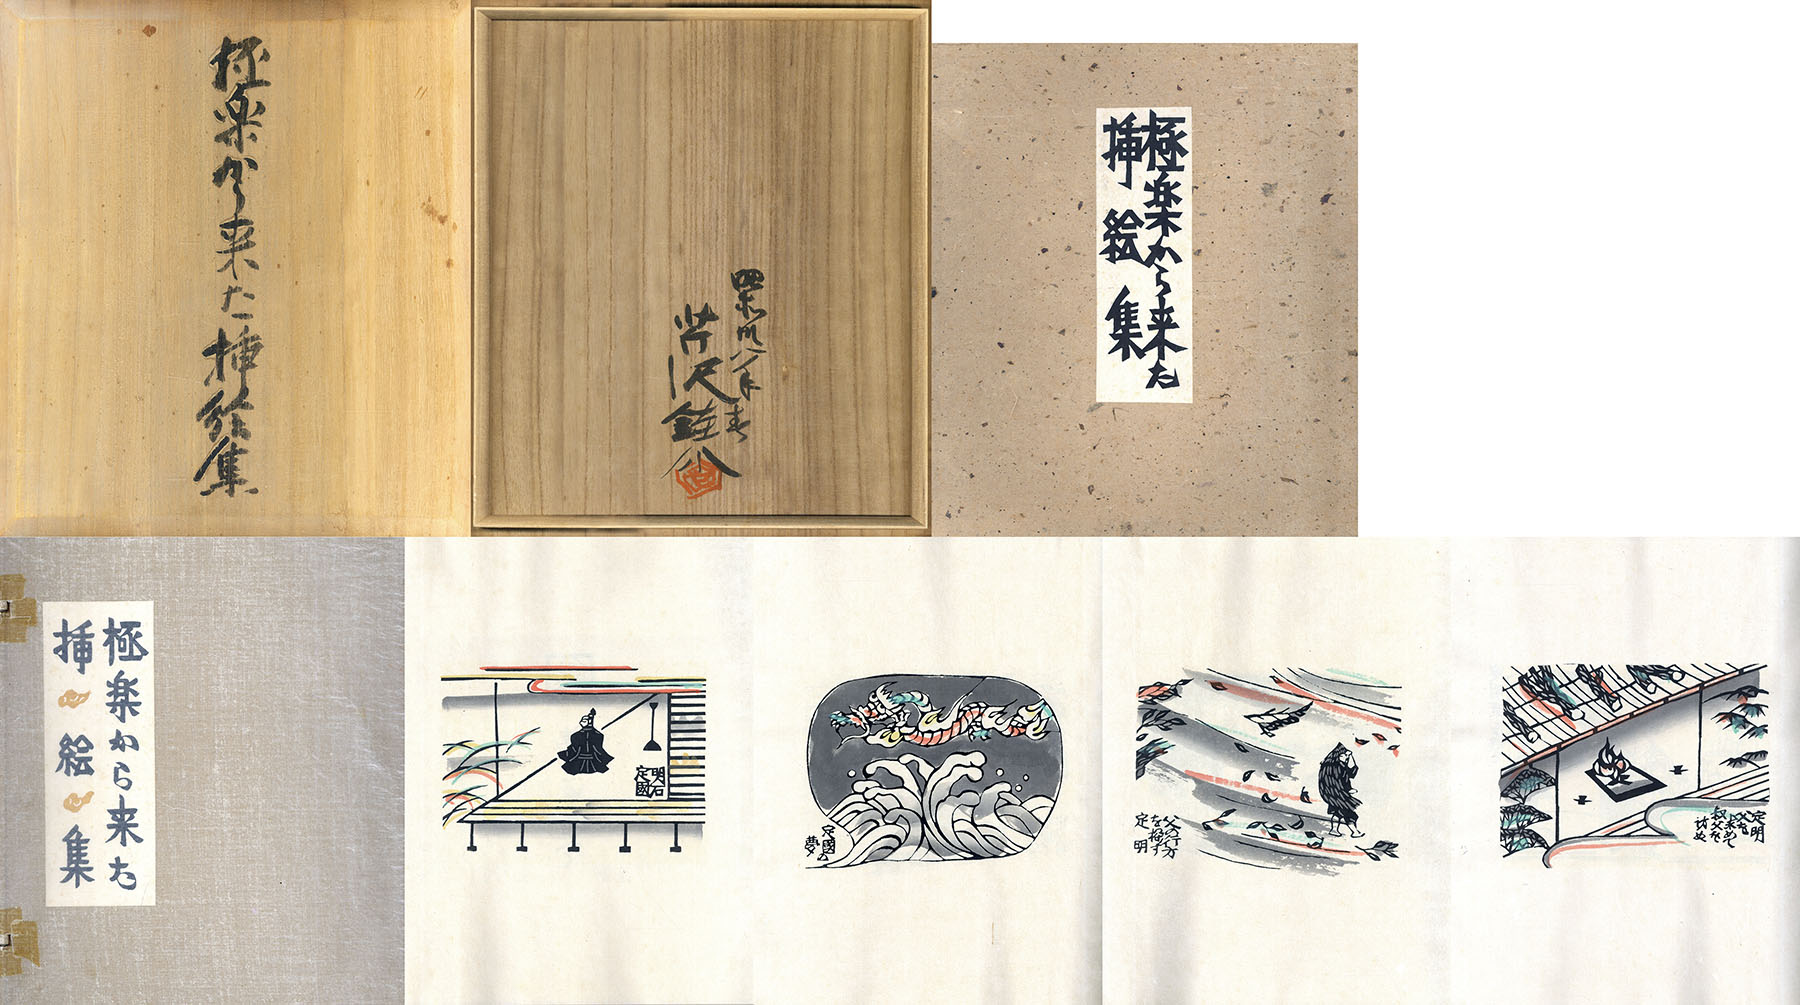 極楽から来た挿絵集
芹沢銈介
極楽から来た
挿絵集
極楽から来た
挿絵集
明石
定國
定國の
夢
父の行方
を捜す
定明
定明
父を
求めて
叔父を
訪ぬ